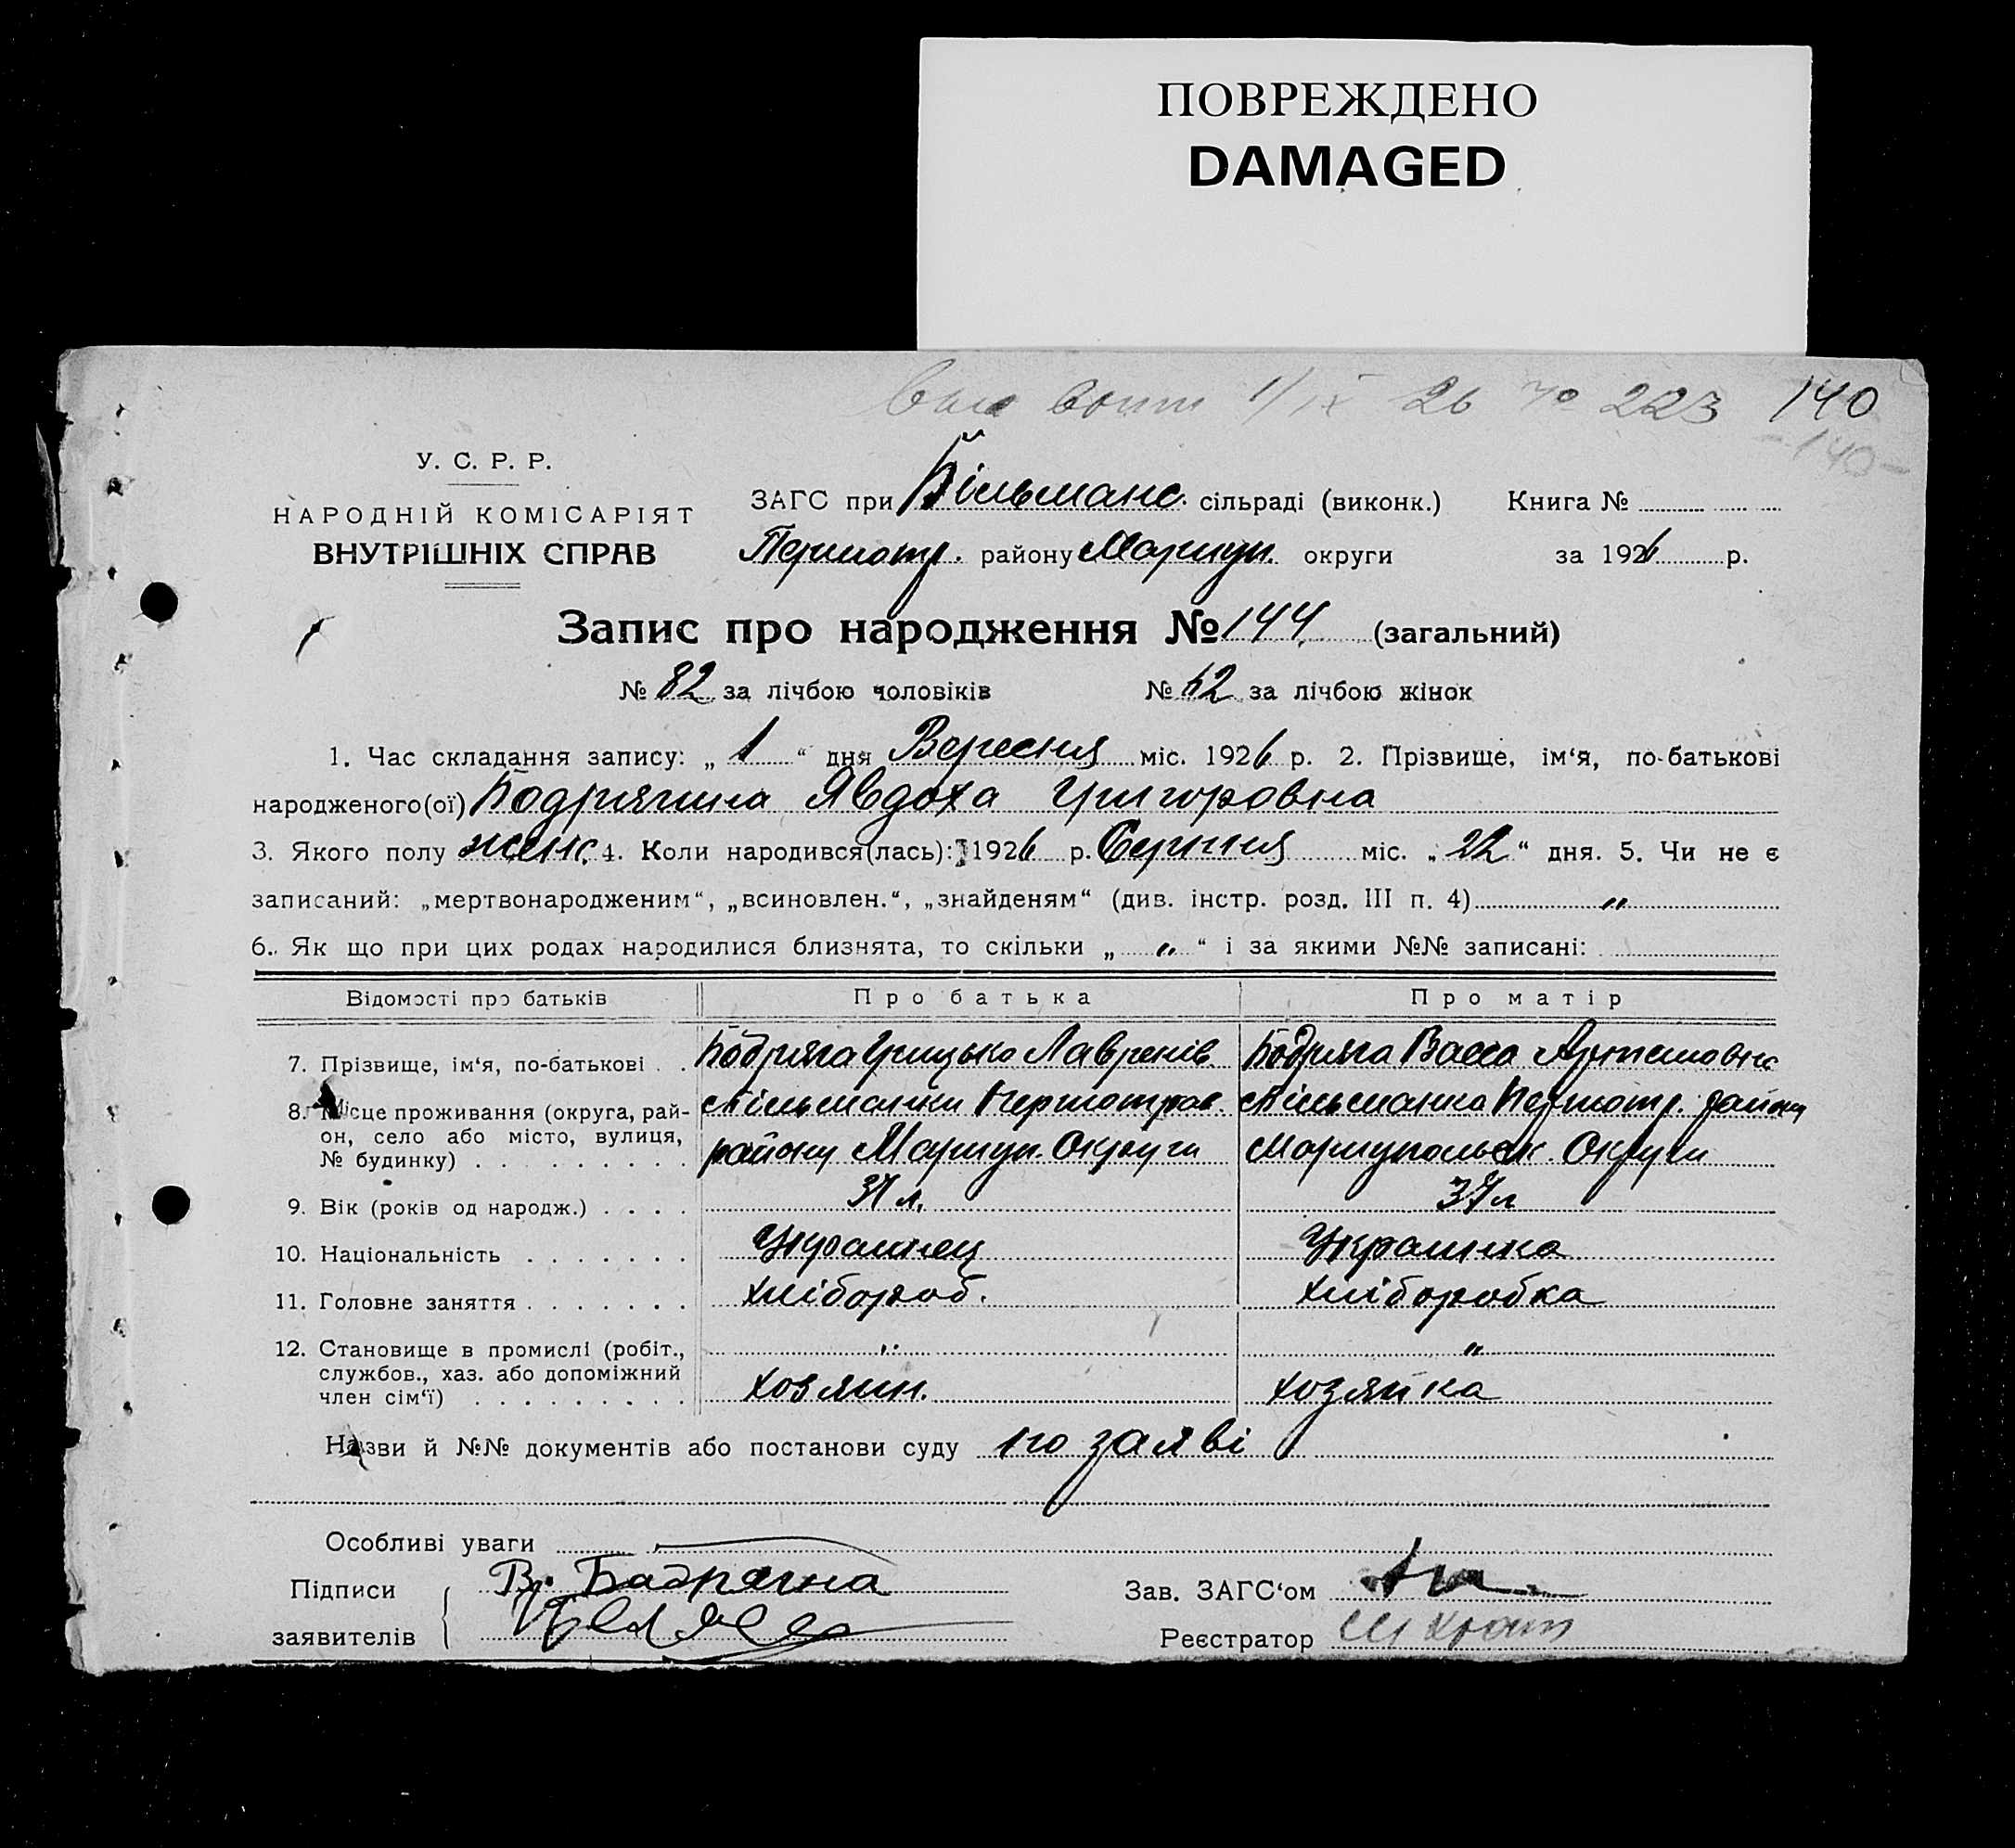 ПОВРЕЖДЕНО
DAMAGED
1/IX 26 № 223 140
-140-
У. С. Р. Р.
НАРОДНІЙ КОМІСАРІЯТ
ВНУТРІШНІХ СПРАВ
ЗАГС при Більманс. сільраді (виконк.) Книга №
Першотр. району Маріуп. округи за 1926 р.
Запис про народження № 144 (загальний)
№ 82 за лічбою чоловіків № 62 за лічбою жінок
1. Час складання запису: „ 1 “ дня Вересня міс. 1926 р. 2. Прізвище, ім‘я, по-батькові
народженого(ої) Бодрягина Явдоха Григоровна
3. Якого полу женс. 4. Коли народився(лась): 1926 р. Серпня міс. „ 22 “ дня. 5. Чи не є
записаний: „мертвонародженим“, „всиновлен.“, „знайденям“ (див. інстр. розд. III п. 4) „
6. Як що при цих родах народилися близнята, то скільки „ „ “ і за якими №№ записані:
Відомості про батьків Про батька Про матір
7. Прізвище, ім‘я, по-батькові Бодряга Грицько Лавренів. Бодряга Васса Артемовна
8. Місце проживання (округа, рай- с Більманки Першотрав. с Більманка Першотр. району
он, село або місто, вулиця, району Маріуп. Округи Маріупольск. Округи
№ будинку)
9. Вік (років од народж.) 37 л. 37 л
10. Національність Украинец Украинка
11. Головне заняття Хлібороб. Хліборобка
12. Становище в промислі (робіт., „ „
службов., хаз. або допоміжний
член сім‘ї) Хозяин. Хозяйка
Назви й №№ документів або постанови суду по заяві
Особливі уваги
Підписи В. Бадрягна
заявителів
Зав. ЗАГС‘ом
Реєстратор